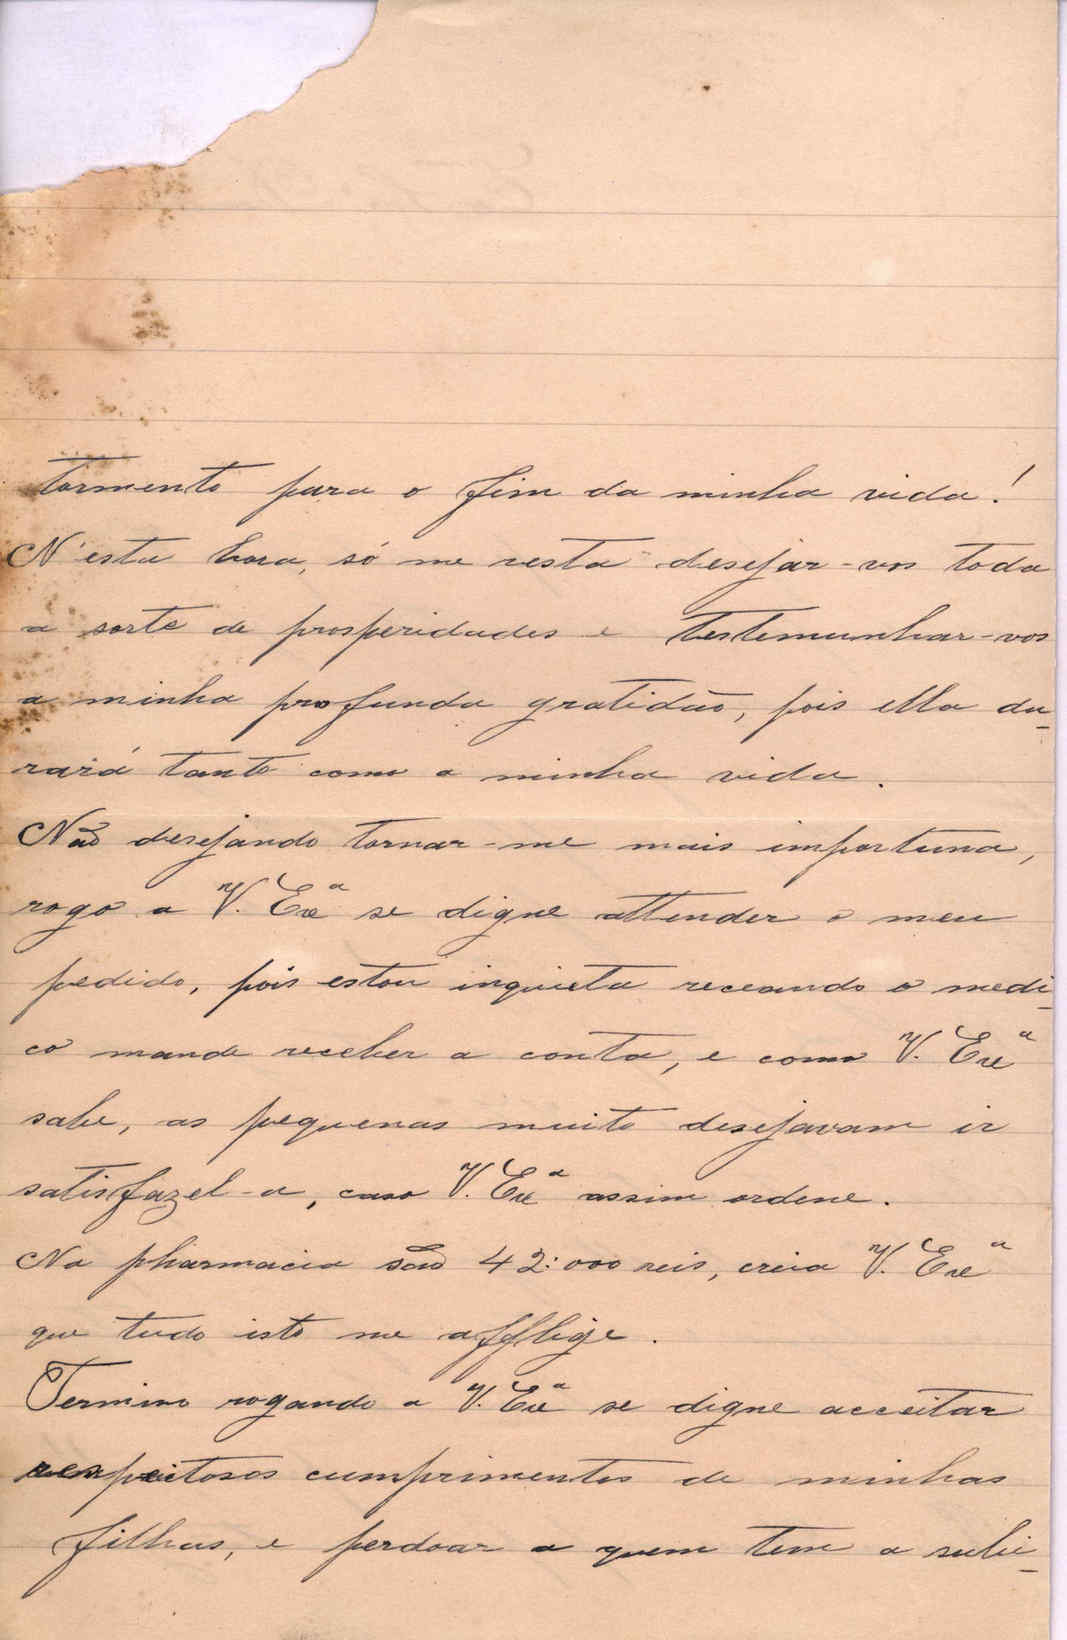 tormento para o fim da minha vida!
N'esta hora, só me resta desejar-vos toda
a sorte de prosperidades e testemunhar-vos
a minha profunda gratidão, pois ella du-
rará tanto como a minha vida.
Não desejando tornar-me mais importuna,
rogo a V. Exª se digne attender o meu
pedido, pois estou inquieta receando o medi-
co mande receber a conta, e como V. Exª
sabe, as pequenas muito desejavam ir
satisfazel-a, caso V. Exª assim ordene.
Na pharmacia são 42:000 reis, creia V. Exª
que tudo isto me afflige.
Termino rogando a V. Exª se digne acceitar
respeitosos cumprimentos de minhas
filhas, e perdoar a quem tem a subi-